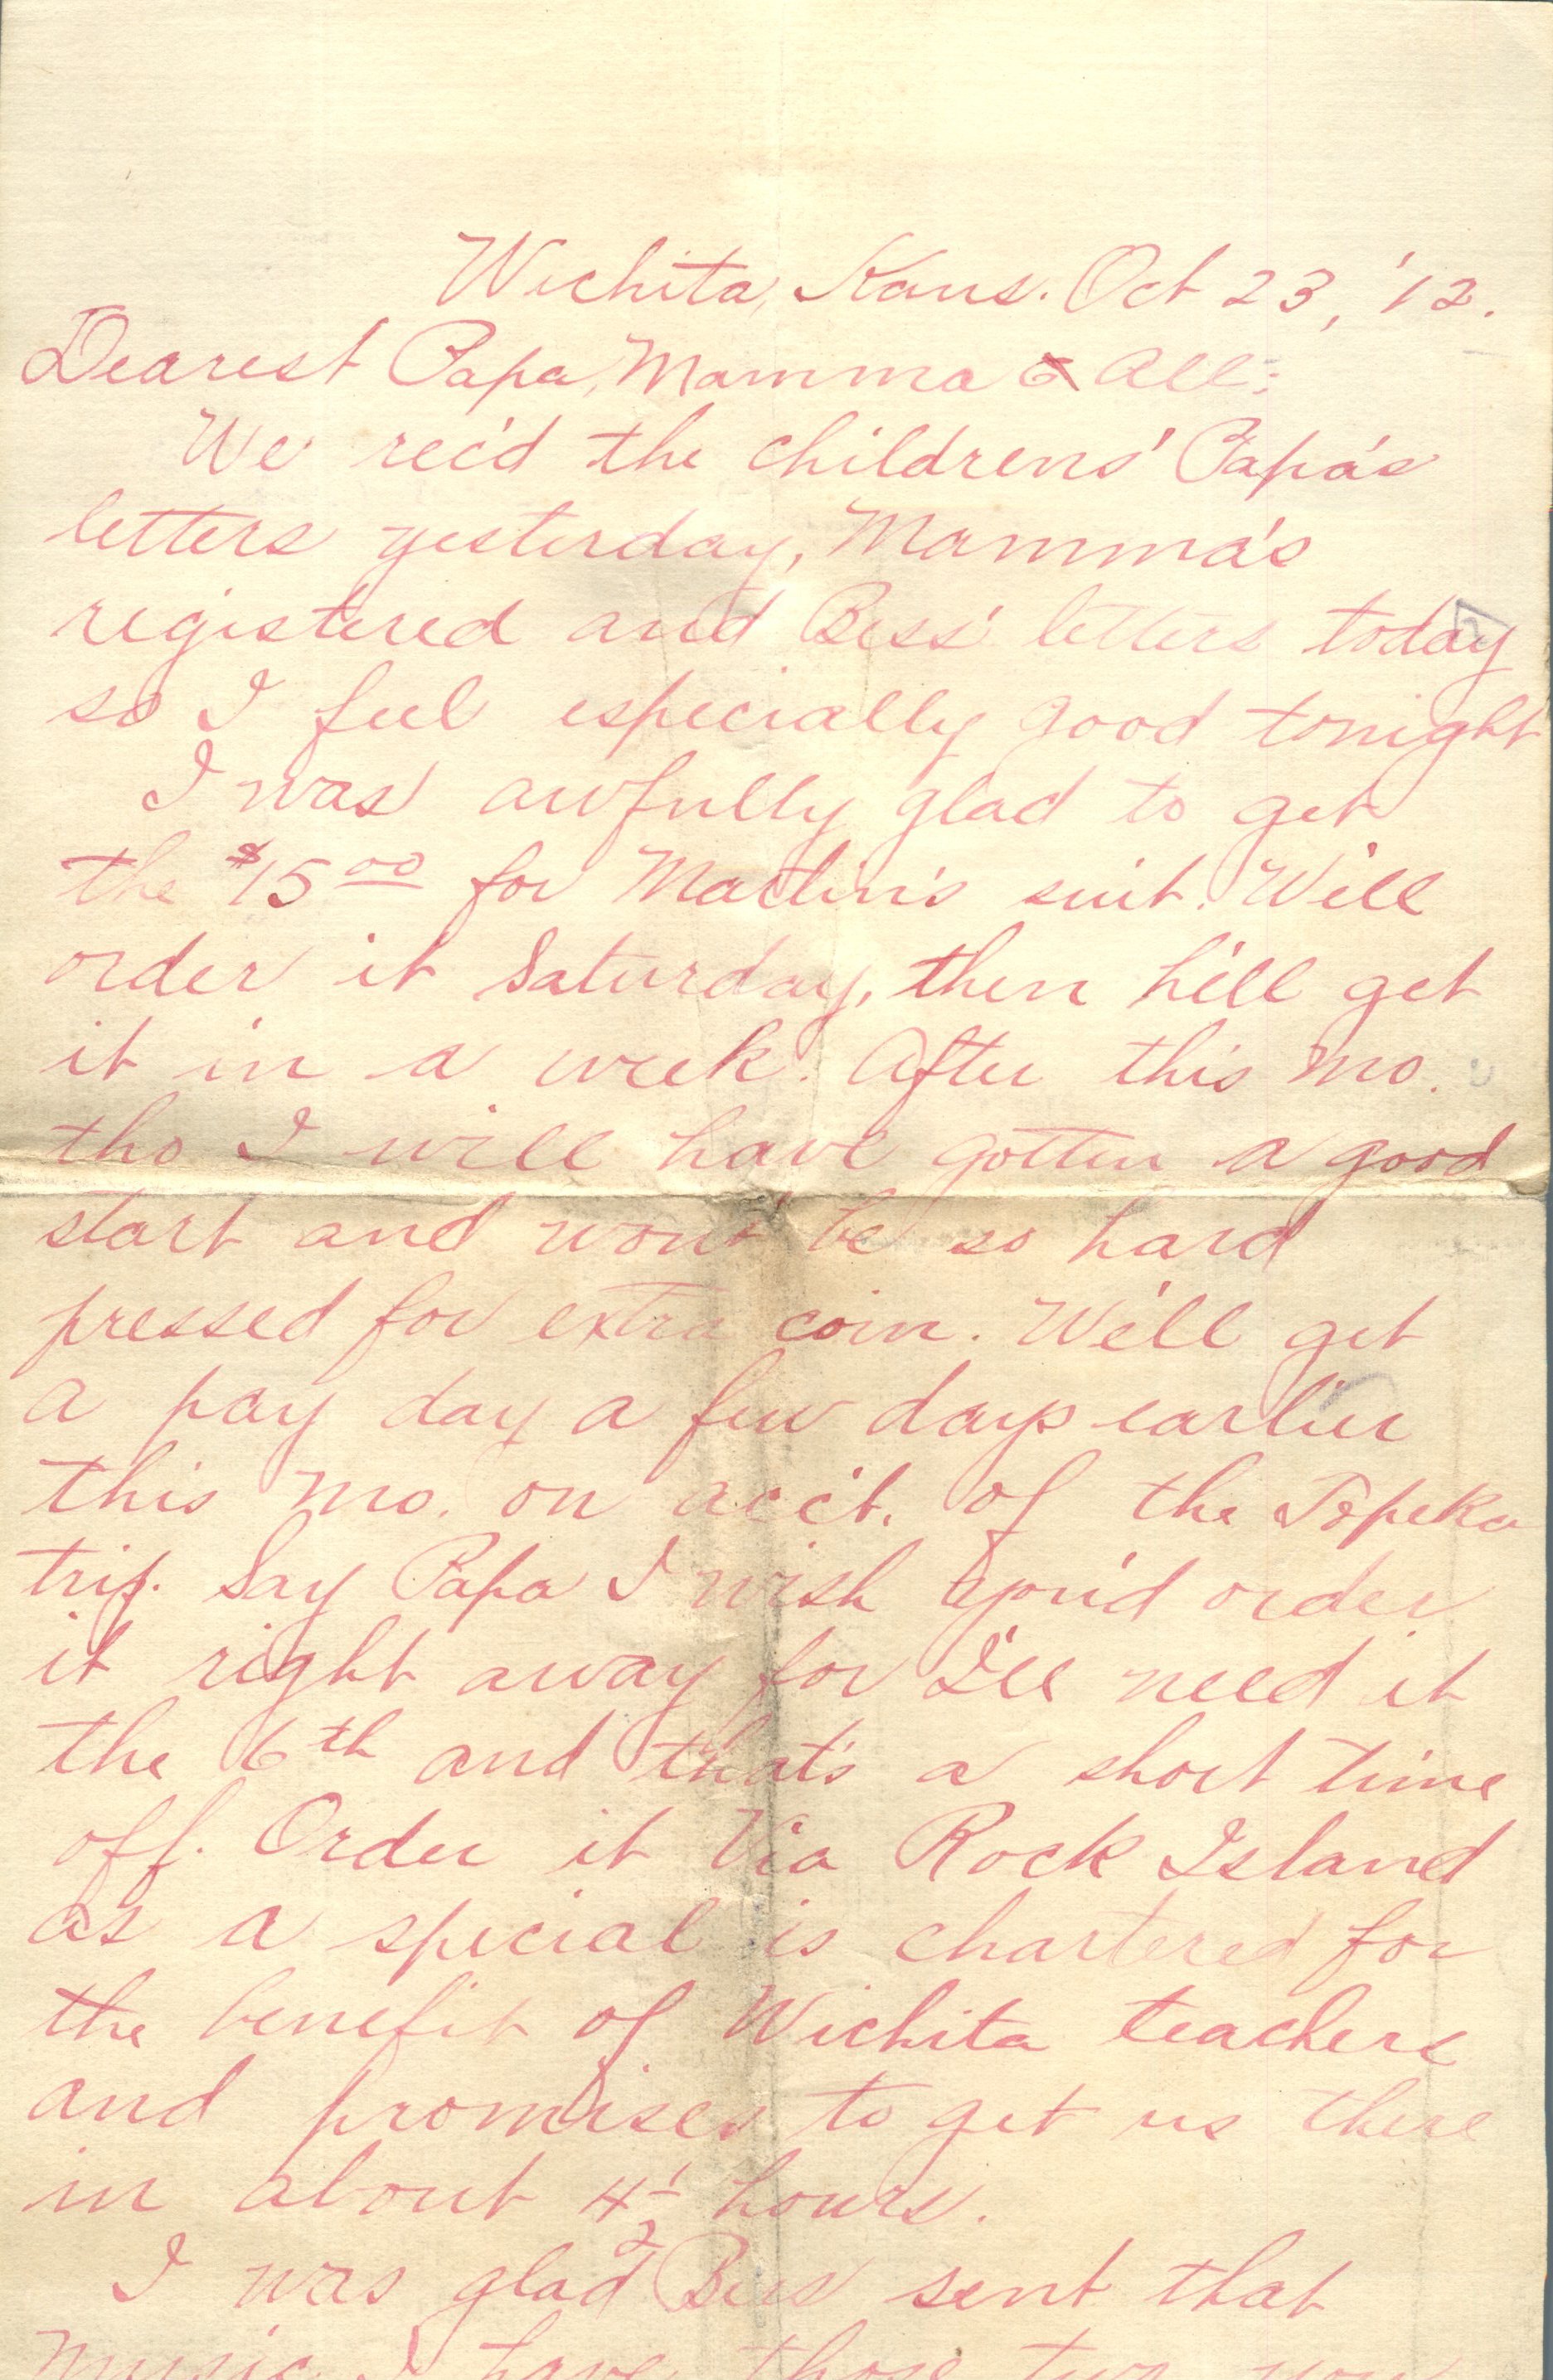 Wichita, Kans. Oct 23, '12.
Dearest Papa, Mamma & All:
We rec'd the childrens' Papa's
letters yesterday, Mamma's
registered and Bess' letters today
so I feel especially good tonight
I was awfully glad to get
the $15 00 for Matlin's suit. Will
order it Saturday, then he'll get
it in a week. After this mo.
tho I will have gotten a good
start and wont be so hard
pressed for extra coin. We'll get
a pay day a few days earlier
this mo. on acc't. of the Topeka
trip. Say Papa I wish you'd order
it right away for I'll need it
the 6th and that's a short time
off. Order it Via Rock Island
as a special is chartered for
the benefit of Wichita teachers
and promises to get us there
in about 4½ hours.
I was glad Bess sent that
music. I have those two